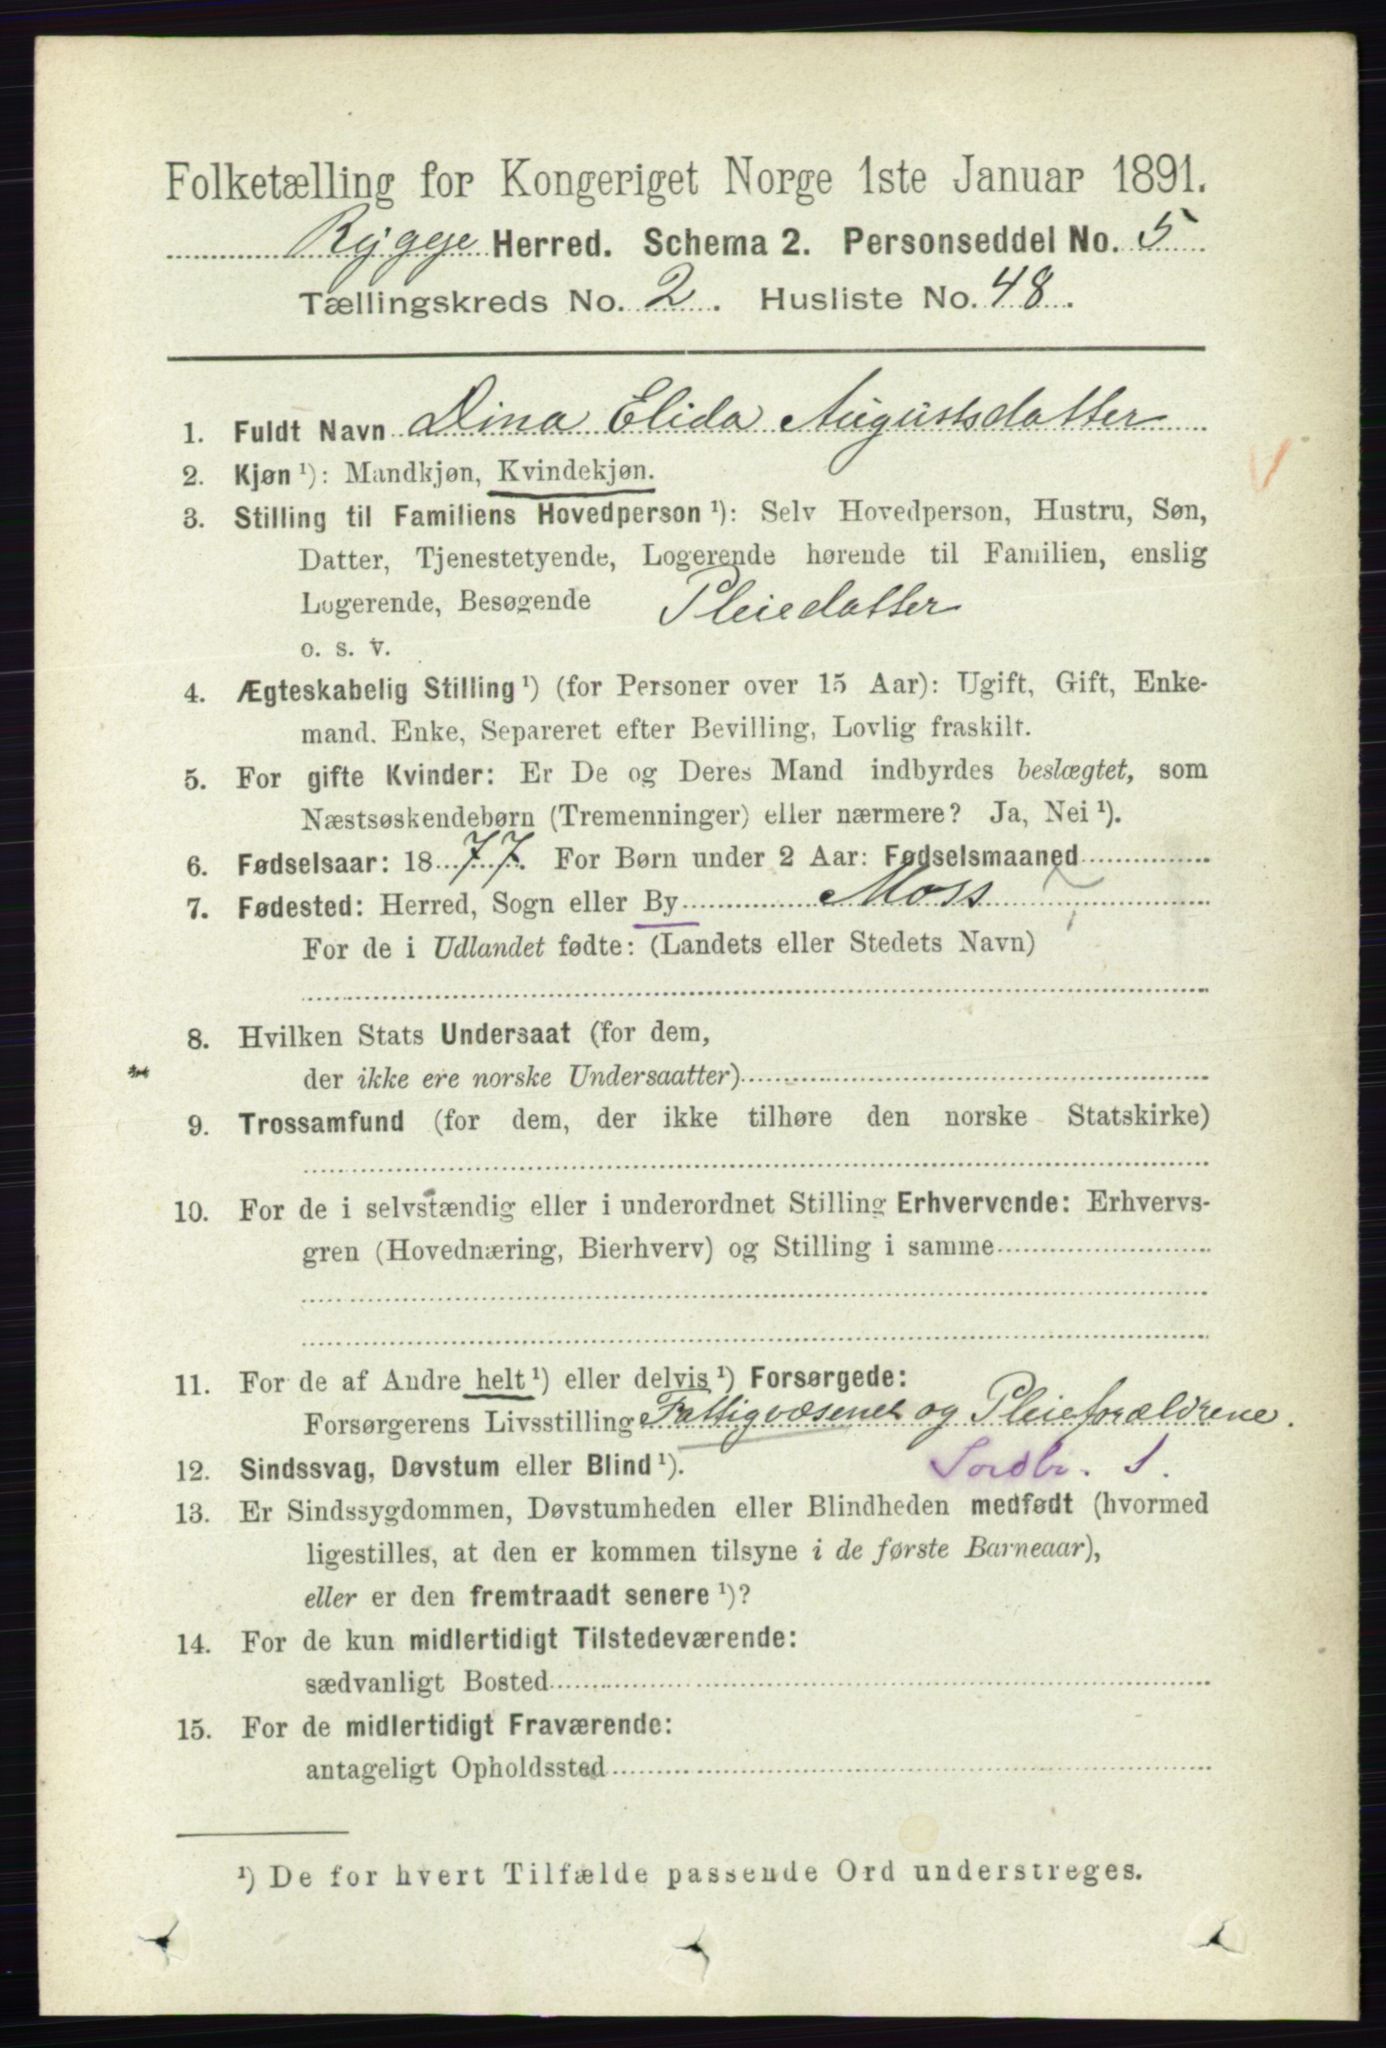 Folketælling for Kongeriget Norge 1ste Januar 1891.
Rygge Herred. Schema 2. Personseddel No. 5
Tællingskreds No. 2. Husliste No. 48.
1. Fuldt Navn Dina Elida Augustsdatter
2. Kjøn ¹): Mandkjøn, Kvindekjøn.
3. Stilling til Familiens Hovedperson ¹): Selv Hovedperson, Hustru, Søn,
Datter, Tjenestetyende, Logerende hørende til Familien, enslig
Logerende, Besøgende Pleiedatter
o. s. v.
4. Ægteskabelig Stilling ¹) (for Personer over 15 Aar): Ugift, Gift, Enke-
mand, Enke, Separeret efter Bevilling, Lovlig fraskilt.
5. For gifte Kvinder: Er De og Deres Mand indbyrdes beslægtet, som
Næstsøskendebørn (Tremenninger) eller nærmere? Ja, Nei ¹).
6. Fødselsaar: 1877. For Børn under 2 Aar: Fødselsmaaned
7. Fødested: Herred, Sogn eller By Moss
For de i Udlandet fødte: (Landets eller Stedets Navn)
8. Hvilken Stats Undersaat (for dem,
der ikke ere norske Undersaatter)
9. Trossamfund (for dem, der ikke tilhøre den norske Statskirke)
10. For de i selvstændig eller i underordnet Stilling Erhvervende: Erhvervs-
gren (Hovednæring, Bierhverv) og Stilling i samme
11. For de af Andre helt ¹) eller delvis ¹) Forsørgede:
Forsørgerens Livsstilling Fattigvæsenet og Pleieforældrene.
12. Sindssvag, Døvstum eller Blind ¹). Jordbr. S.
13. Er Sindssygdommen, Døvstumheden eller Blindheden medfødt (hvormed
ligestilles, at den er kommen tilsyne i de første Barneaar),
eller er den fremtraadt senere ¹)?
14. For de kun midlertidigt Tilstedeværende:
sædvanligt Bosted
15. For de midlertidigt Fraværende:
antageligt Opholdssted
¹) De for hvert Tilfælde passende Ord understreges.